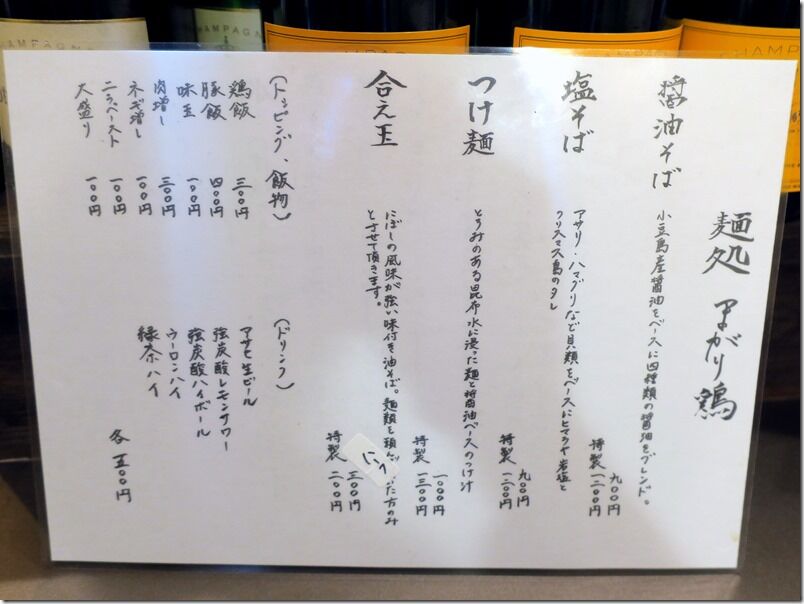 麺処 まがり鶏
醤油そば
小豆島産醤油をベースに四種類の醤油をブレンド。
九〇〇円
特製 一二〇〇円
塩そば
アサリ・ハマグリなど貝類をベースにヒマラヤ岩塩と
クリスマス島のタレ
九〇〇円
特製 一二〇〇円
つけ麺
とろみのある昆布水に浸った麺と醤油ベースのつけ汁
一〇〇〇円
特製 一三〇〇円
合え玉
にぼしの風味が強い味付き油そば。麺類を頂いた方のみ
とさせて頂きます。
三〇〇円
特製 二〇〇円
(トッピング、飯物)
鶏飯 三〇〇円
豚飯 四〇〇円
味玉 一〇〇円
肉増し 三〇〇円
ネギ増し 一〇〇円
ニラペースト 一〇〇円
大盛り 一〇〇円
(ドリンク)
アサヒ生ビール
強炭酸レモンサワー
強炭酸ハイボール
ウーロンハイ
緑茶ハイ
各 五〇〇円
CHAMPAGN
CHAMPAGN